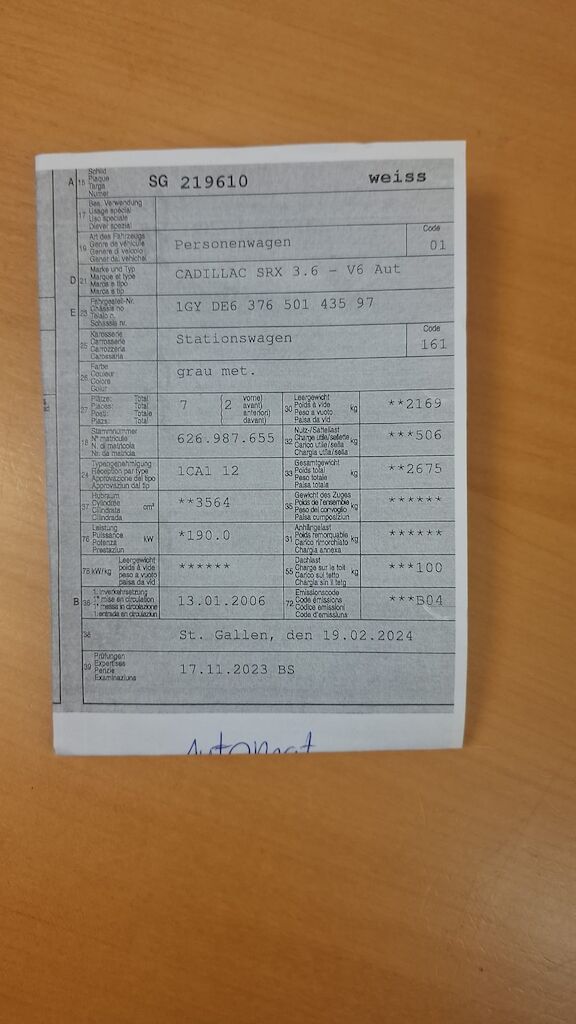 A 15 Schild Plaque Targa Numer SG 219610 weiss
17 Bes. Verwendung Usage spécial Uso speciale Diever spezial
19 Art des Fahrzeugs Genre de véhicule Genere di veicolo Gener dal vehichel Personenwagen Code 01
D 21 Marke und Typ Marque et type Marca e tipo Marca e tip CADILLAC SRX 3.6 - V6 Aut
E 23 Fahrgestell-Nr. Châssis no Telaio n. Schassis nr. 1GY DE6 376 501 435 97
25 Karosserie Carrosserie Carrozzeria Carossaria Stationswagen Code 161
26 Farbe Couleur Colore Colur grau met.
27 Plätze: Total Places: Total Posti: Totale Plazs: Total 7 (2 vorne) avant) anteriori) davant) 30 Leergewicht Poids à vide Peso a vuoto Paisa da vid kg **2169
18 Stammnummer N° matricule N. di matricola Nr. da matricla 626.987.655 32 Nutz-/Sattellast Charge utile/sellette Carico utile/sella Chargia utila/sella kg ***506
24 Typengenehmigung Réception par type Approvazione del tipo Approvaziun dal tip 1CA1 12 33 Gesamtgewicht Poids total Peso totale Paisa totala kg **2675
37 Hubraum Cylindrée Cilindrata Cilindrada cm³ **3564 35 Gewicht des Zuges Poids de l'ensemble Peso del convoglio Paisa cumposiziun kg ******
76 Leistung Puissance Potenza Prestaziun kW *190.0 31 Anhängelast Poids remorquable Carico rimorchiato Chargia annexa kg ******
78 kW/kg Leergewicht poids à vide peso a vuoto paisa da vid ****** 55 Dachlast Charge sur le toit Carico sul tetto Chargia sin il tetg kg ***100
B 36 1. Inverkehrsetzung 1re mise en circulation 1a messa in circolazione 1. entrada en circulaziun 13.01.2006 72 Emissionscode Code émissions Codice emissioni Code d'emissiuns ***B04
38 St. Gallen, den 19.02.2024
39 Prüfungen Expertises Perizie Examinaziuns 17.11.2023 BS
Automat